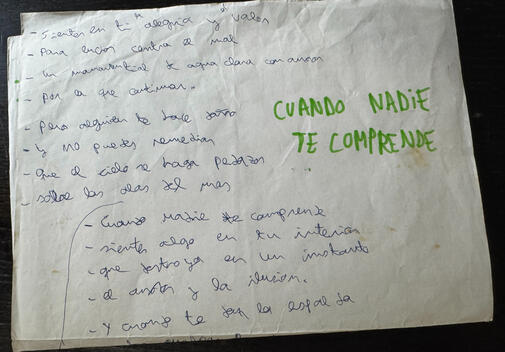 - Sientes en ti la alegría y el valor
- Para luchar contra el mal
- Un manantial de agua clara con amor
- Por la que caminar.
- Pero alguien te hace daño
- Y no puedes remediar
- Que el cielo se haga pedazos
- sobre las olas del mar
CUANDO NADIE
TE COMPRENDE
- Cuando nadie te comprende
- sientes algo en tu interior
- que destroya en un instante
- el amor y la ilusion.
- Y cuando te dan la espalda